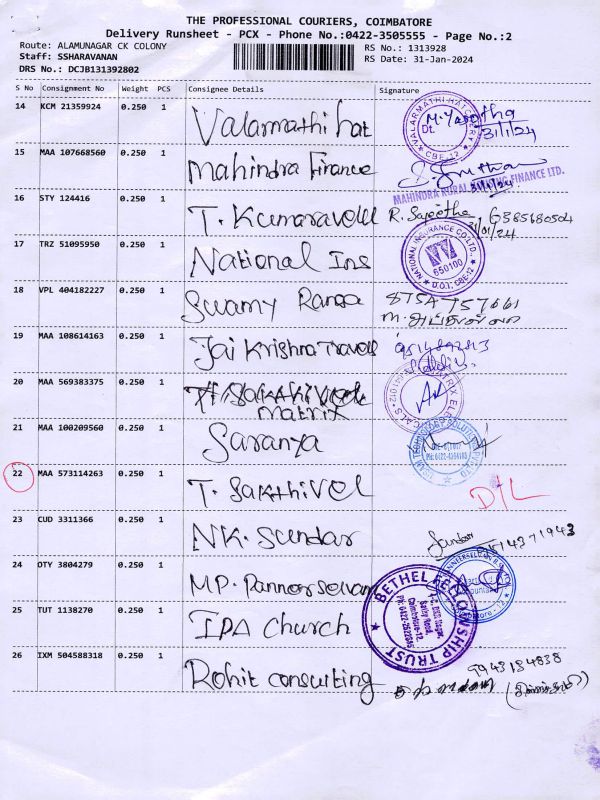 THE PROFESSIONAL COURIERS, COIMBATORE
Delivery Runsheet - PCX - Phone No.:0422-3505555 - Page No.:2
Route: ALAMUNAGAR CK COLONY
RS No.: 1313928
Staff: SSHARAVANAN
RS Date: 31-Jan-2024
DRS No.: DCJB131392802
S No Consignment No Weight PCS Consignee Details Signature
14 KCM 21359924 0.250 1 Valarmathi hat
VALARMATHI HATCHERY CBE-12 Dt. 31/1/24
15 MAA 107668560 0.250 1 Mahindra Finance
MAHINDRA RURAL HOUSING FINANCE LTD.
16 STY 124416 0.250 1 T. Kumaravelu R. Sajeetha 6385680504
31/01/24
17 TRZ 51095950 0.250 1 National Ins
NATIONAL INSURANCE CO. LTD. 650100 D.O.I. CBE-12
18 VPL 404182227 0.250 1 Swamy Ranga
19 MAA 108614163 0.250 1 Jai Krishna Travels
20 MAA 569383375 0.250 1 matrix
21 MAA 100209560 0.250 1 Saranya
22 MAA 573114263 0.250 1 T. Sakthivel D/L
23 CUD 3311366 0.250 1 NK. Sundar Sundar
24 OTY 3804279 0.250 1 MP. Pannerselvam
25 TUT 1138270 0.250 1 IPA Church
BETHEL FELLOWSHIP TRUST
26 IXM 504588318 0.250 1 Rohit consulting 9943184838